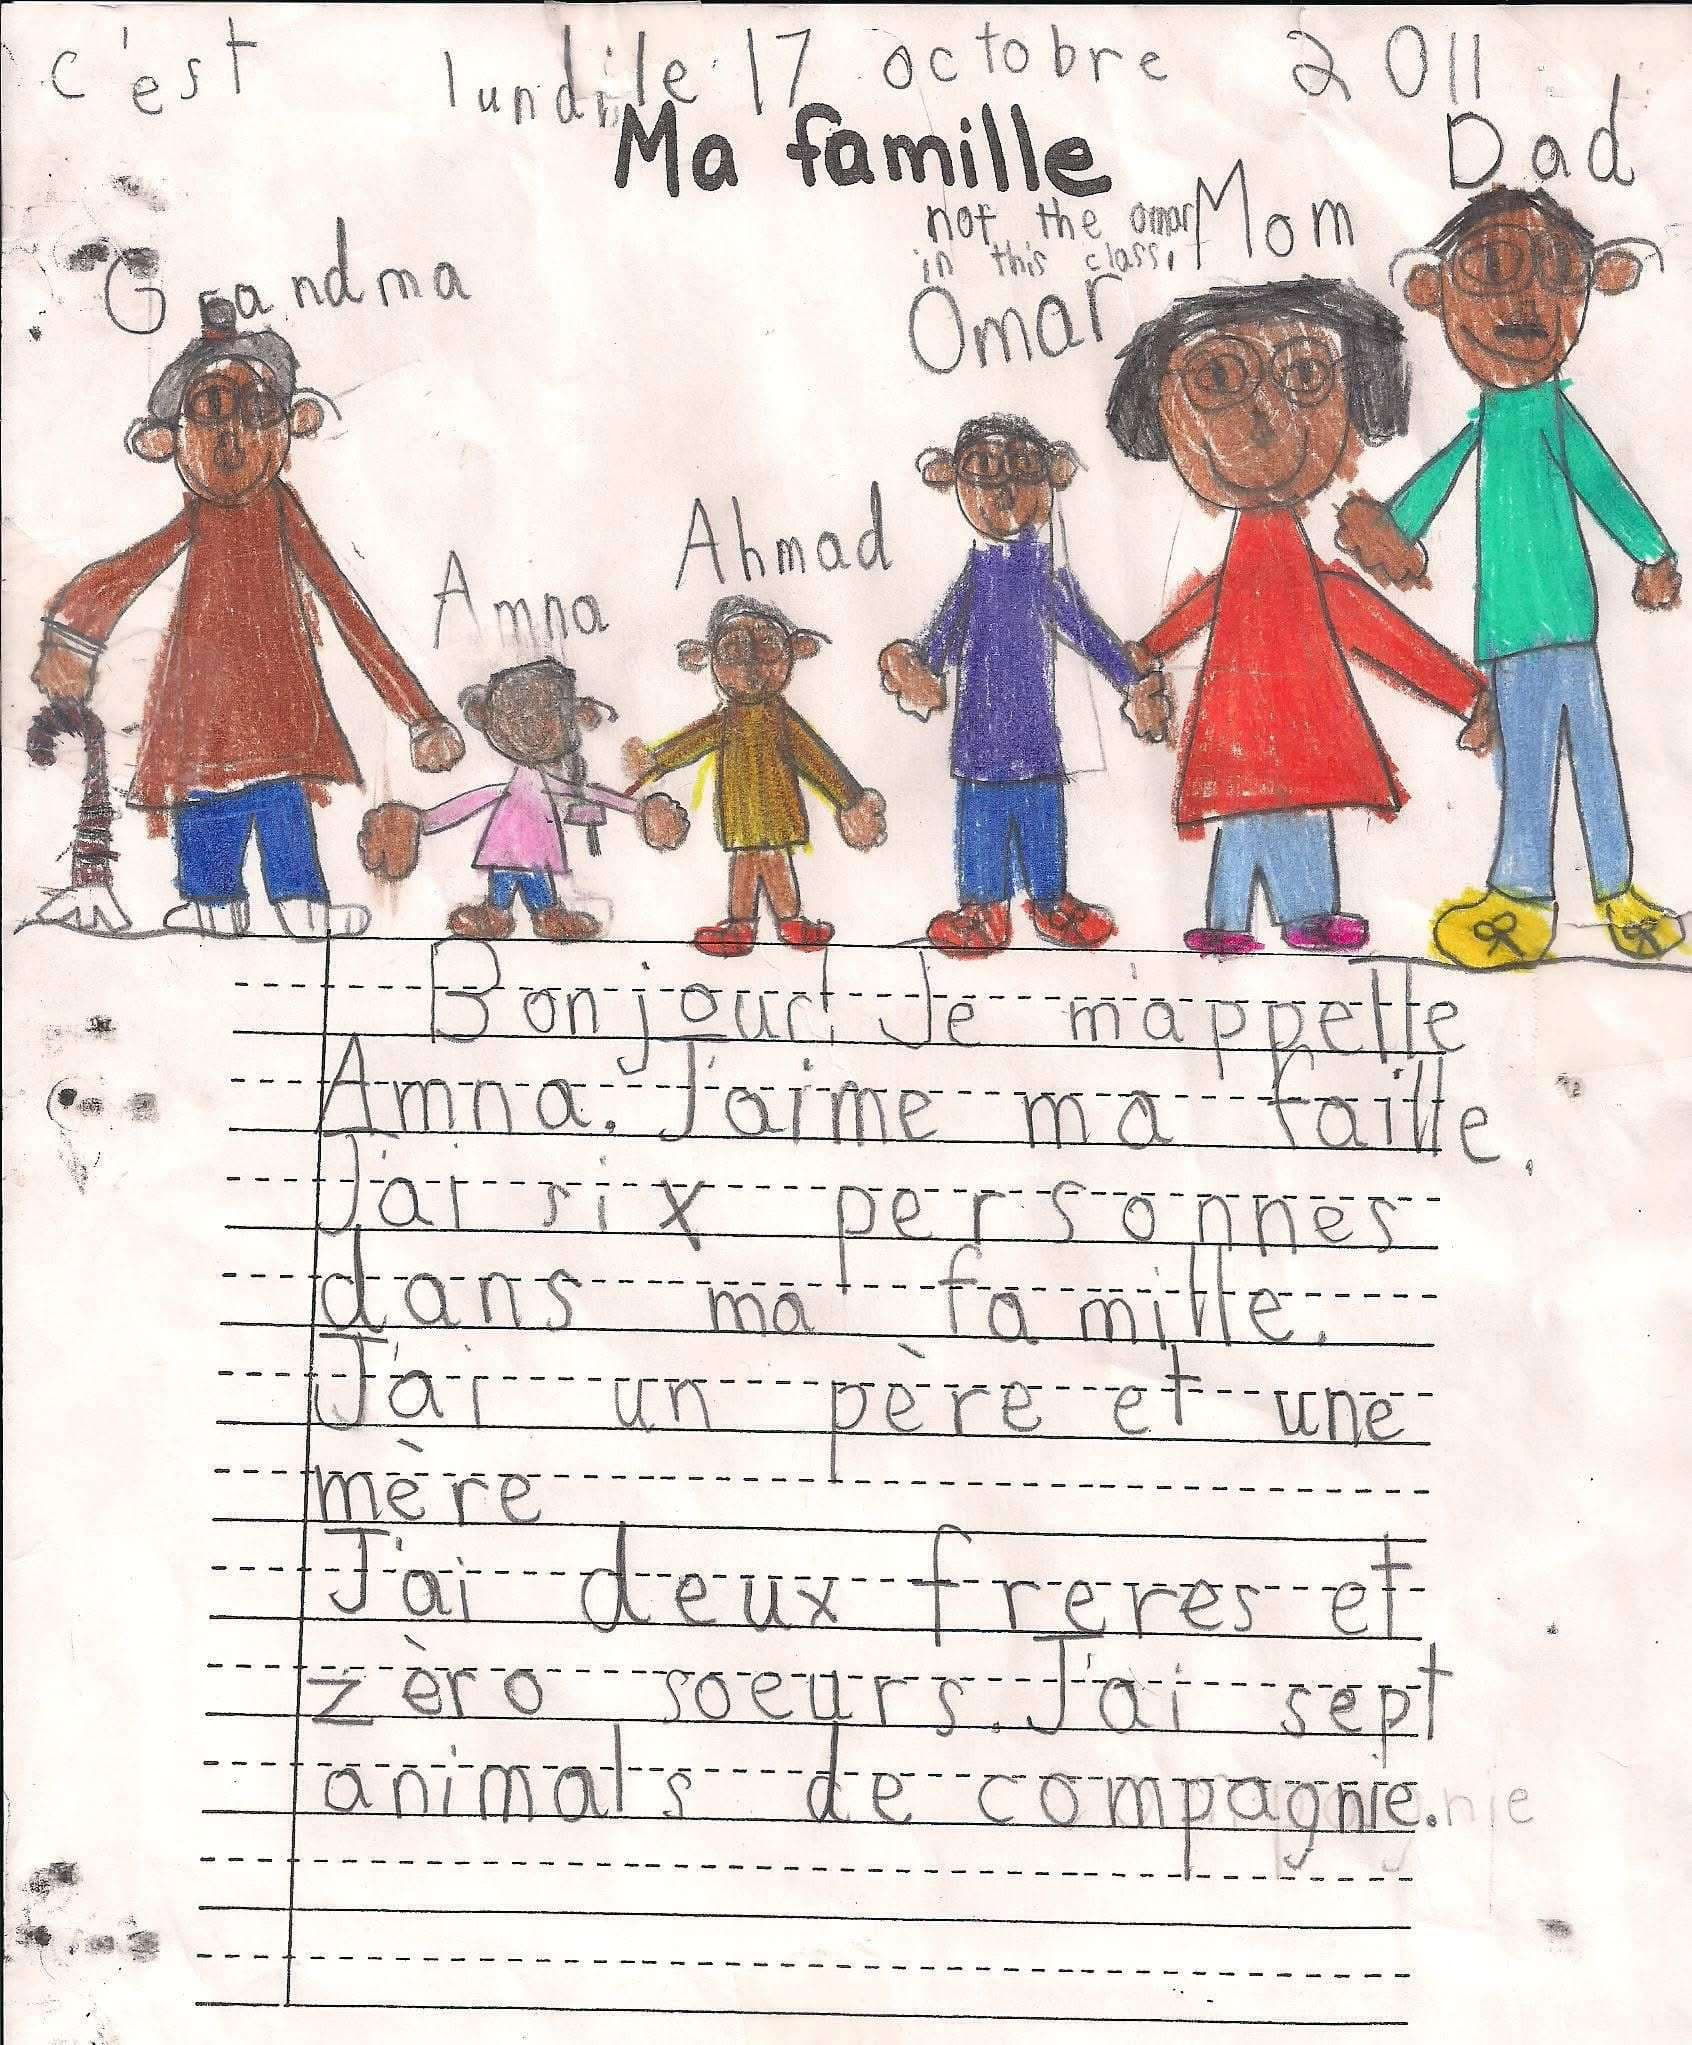 c'est lundi le 17 octobre 2011
Ma famille
Dad
Mom
not the omar
in this class.
Omar
Grandma
Ahmad
Amna
Bonjour! Je m'appelle
Amna. J'aime ma faille.
J'ai six personnes
dans ma famille.
J'ai un père et une
mère
J'ai deux freres et
zèro soeurs. J'ai sept
animals de compagnie.